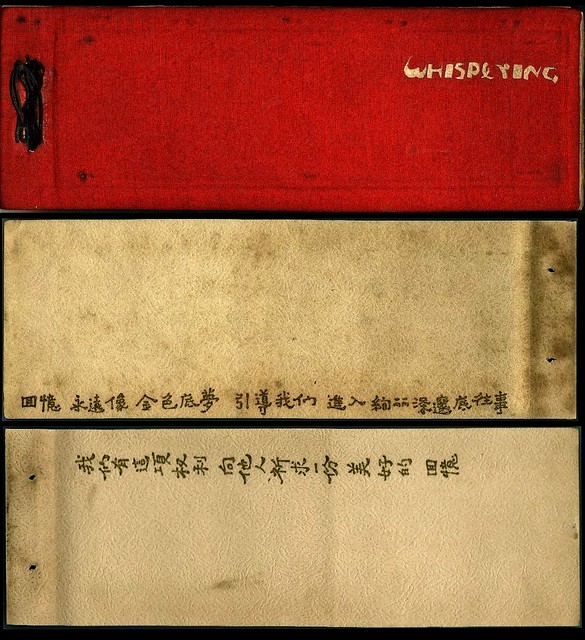 WHISPERING
回憶 永遠像 金色底夢 引導我們 進入絢丽深邃底往事
我們有這項权利 向他人祈求一份美好的 回憶